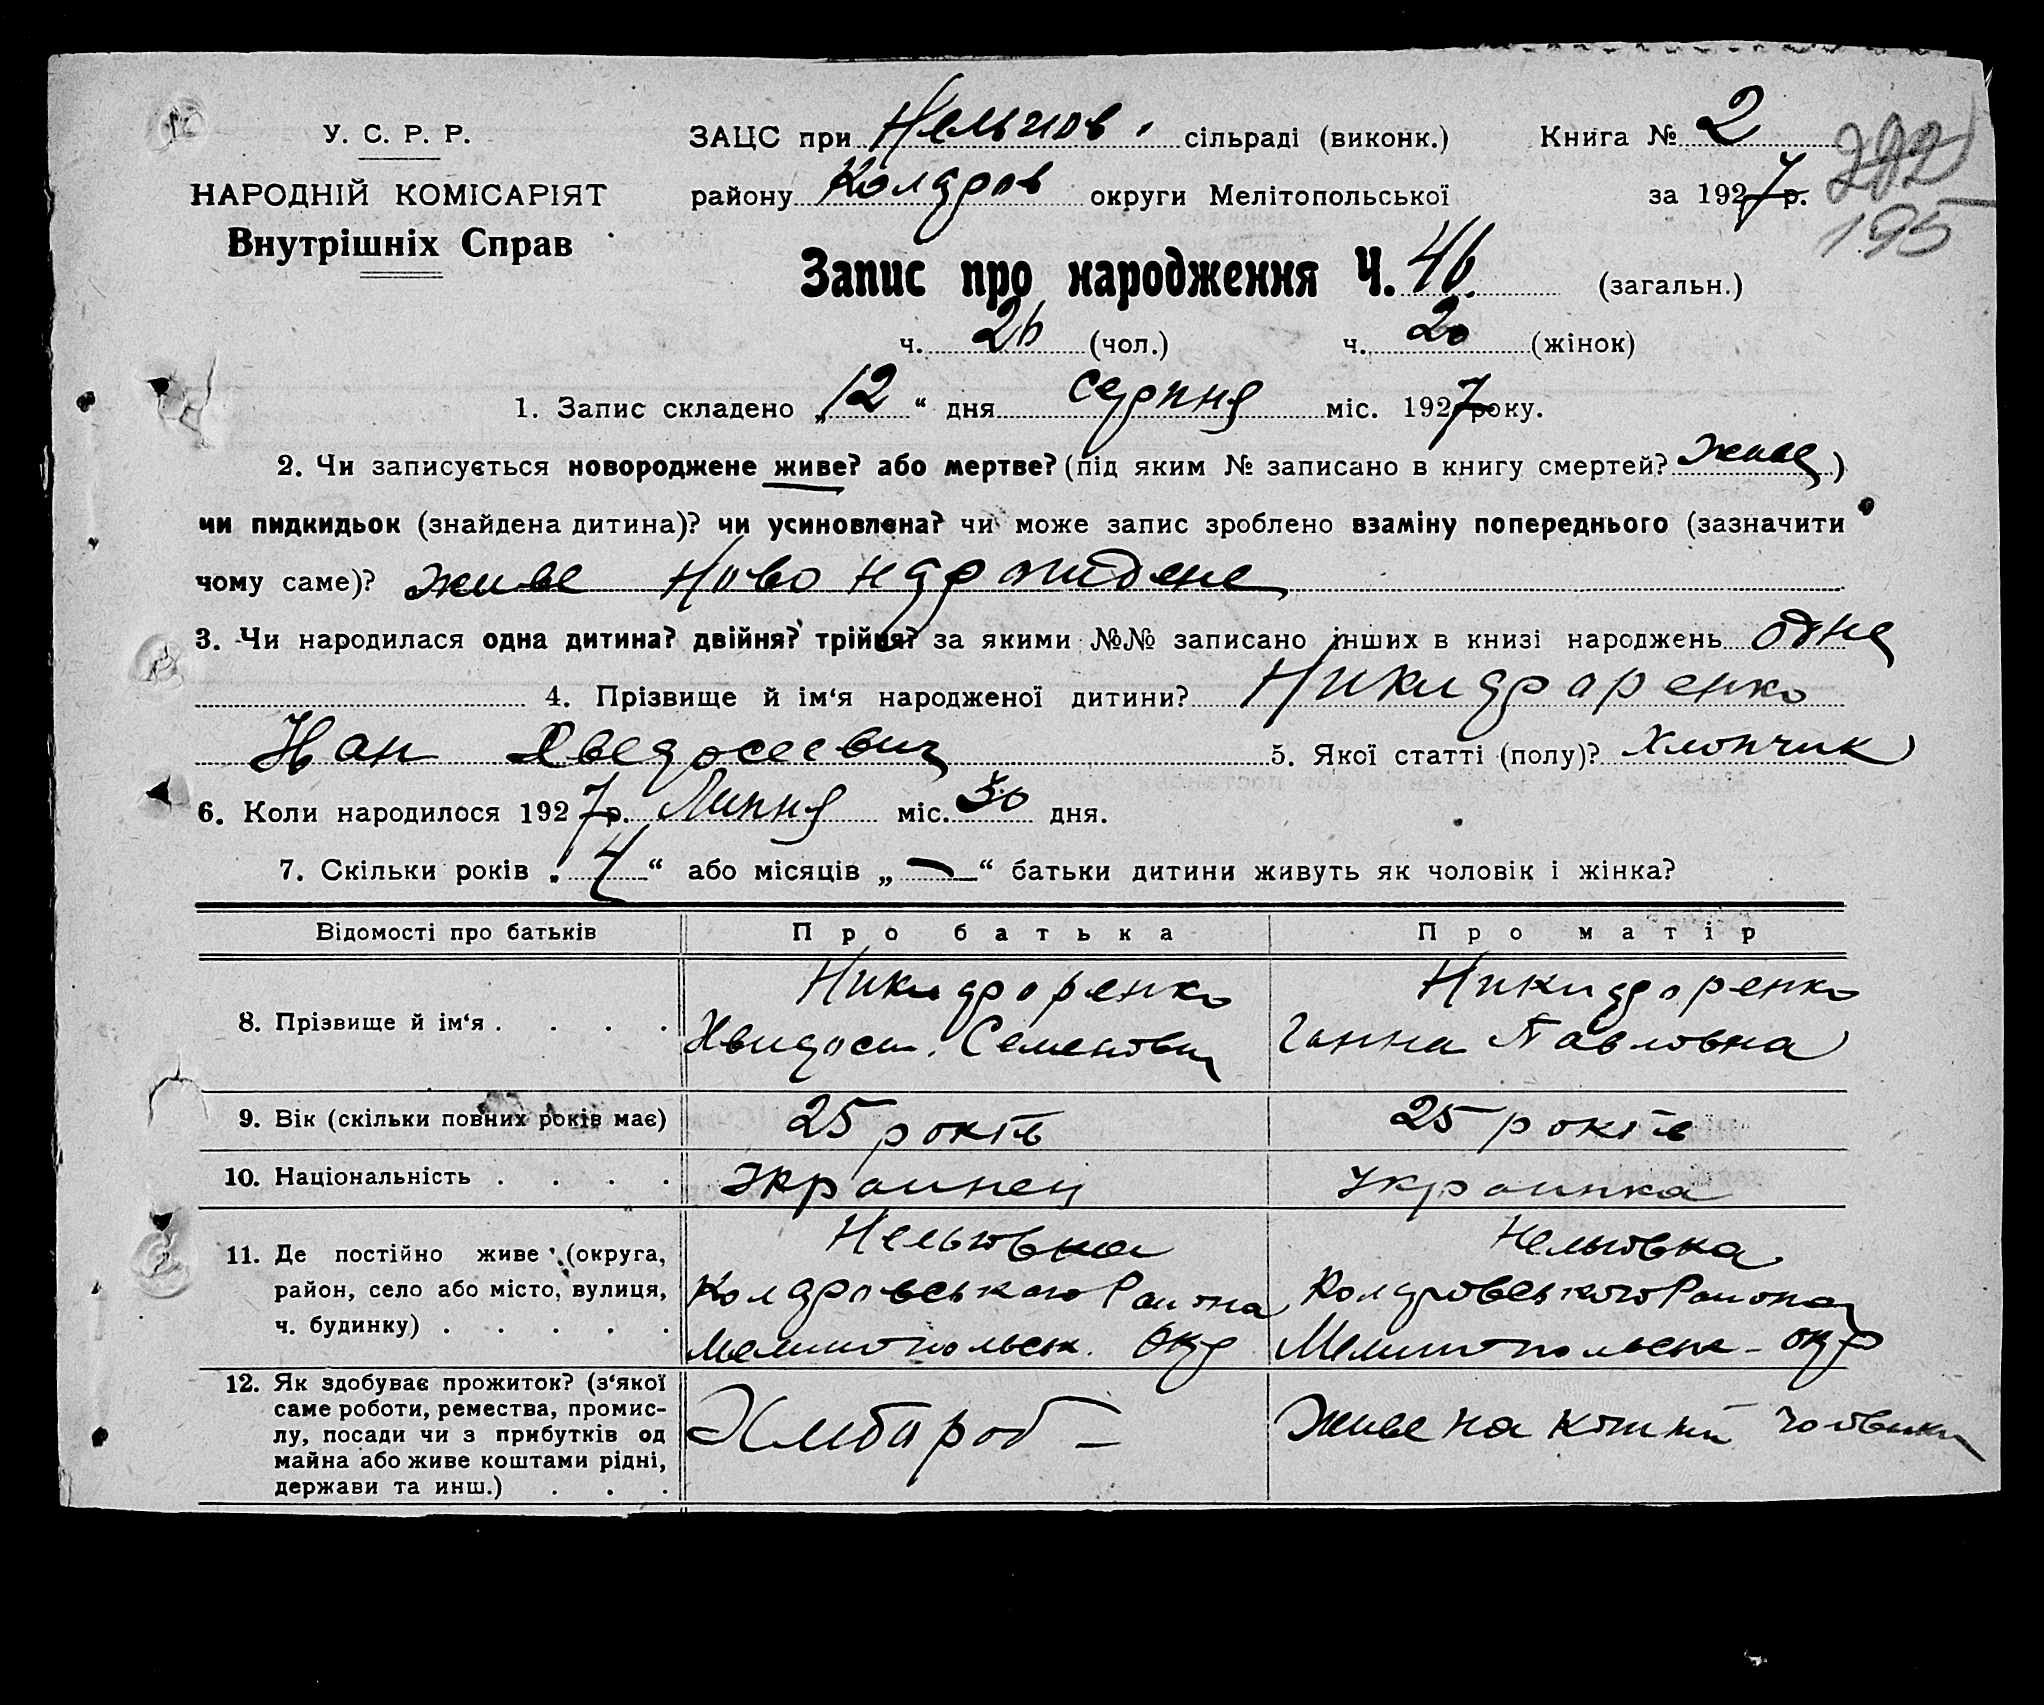 У. С. Р. Р.
НАРОДНІЙ КОМІСАРІЯТ
Внутрішніх Справ
ЗАЦС при Нельгов. сільраді (виконк.) Книга № 2
району Колдров округи Мелітопольської за 1927 р.
202
195
Запис про народження Ч. 46. (загальн.)
ч. 26 (чол.) ч. 20 (жінок)
1. Запис складено „12“ дня серпня міс. 1927 року.
2. Чи записується новороджене живе? або мертве? (під яким № записано в книгу смертей? живе)
чи пидкидьок (знайдена дитина)? чи усиновлена? чи може запис зроблено взаміну попереднього (зазначити
чому саме)? живе Ново народжене
3. Чи народилася одна дитина? двійня? трійня? за якими №№ записано інших в книзі народжень одна
4. Прізвище й ім‘я народженої дитини? Никидфоренко
Иван Хведосеевич 5. Якої статті (полу)? Хлопчик
6. Коли народилося 1927 р. Липня міс. 30 дня.
7. Скільки років „4“ або місяців „—“ батьки дитини живуть як чоловік і жінка?
Відомості про батьків Про батька Про матір
8. Прізвище й ім‘я . . . . Никидфоренко Никидфоренко
Семенович Ганна Павловна
9. Вік (скільки повних років має) 25 років 25 років
10. Національність . . . . Украинец Украинка
11. Де постійно живе (округа, Нельговка Нельговка
район, село або місто, вулиця, Района Района
ч. будинку) . . . . . Мелитопольск. окр Мелитопольск - окр
12. Як здобуває прожиток? (з‘якої
саме роботи, ремества, промис-
лу, посади чи з прибутків од Хлибороб – Живе на кошти чоловика
майна або живе коштами рідні,
держави та инш.) . . .